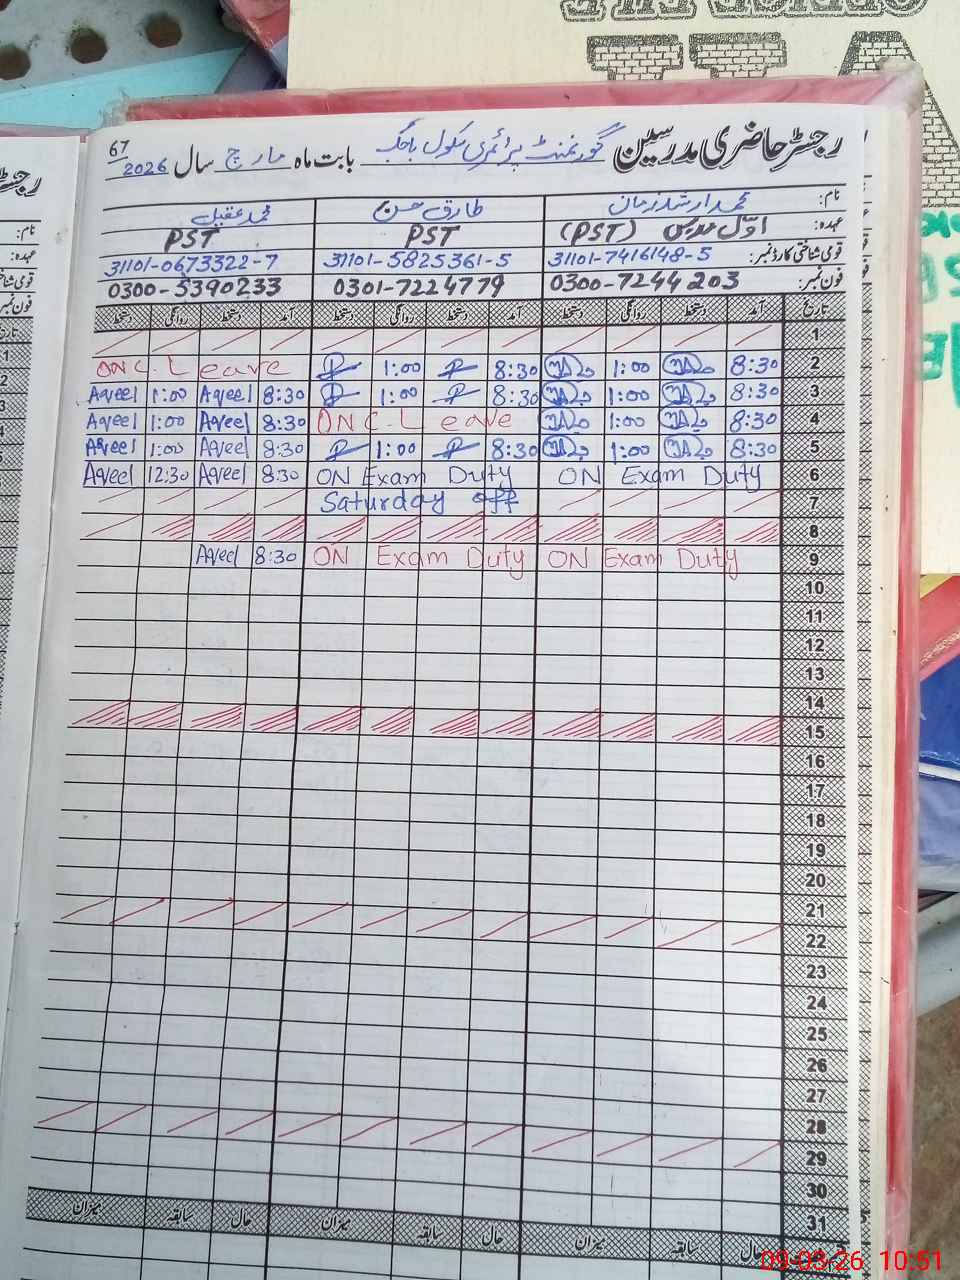 رجسٹر حاضری مدرسین گورنمنٹ پرائمری سکول بابت ماہ مارچ سال 2026
67
نام: محمد ارشد زمان طارق حسن محمد عقیل
عہدہ: اوّل مدرس (PST) PST PST
قومی شناختی کارڈ نمبر: 31101-7416148-5 31101-5825361-5 31101-0673322-7
فون نمبر: 0300-7244203 0301-7224779 0300-5390233
تاریخ آمد دستخط روانگی دستخط آمد دستخط روانگی دستخط آمد دستخط روانگی دستخط
1
2 8:30 1:00 8:30 1:00 ON C.L Leave
3 8:30 1:00 8:30 1:00 8:30 Aqeel 1:00 Aqeel
4 8:30 1:00 ON C.L Leave 8:30 Aqeel 1:00 Aqeel
5 8:30 1:00 8:30 1:00 8:30 Aqeel 1:00 Aqeel
6 ON Exam Duty ON Exam Duty 8:30 Aqeel 12:30 Aqeel
7 Saturday off
8
9 ON Exam Duty ON Exam Duty 8:30 Aqeel
10
11
12
13
14
15
16
17
18
19
20
21
22
23
24
25
26
27
28
29
30
31
حال سابقہ میزان حال سابقہ میزان حال سابقہ میزان
09-03-26 10:51